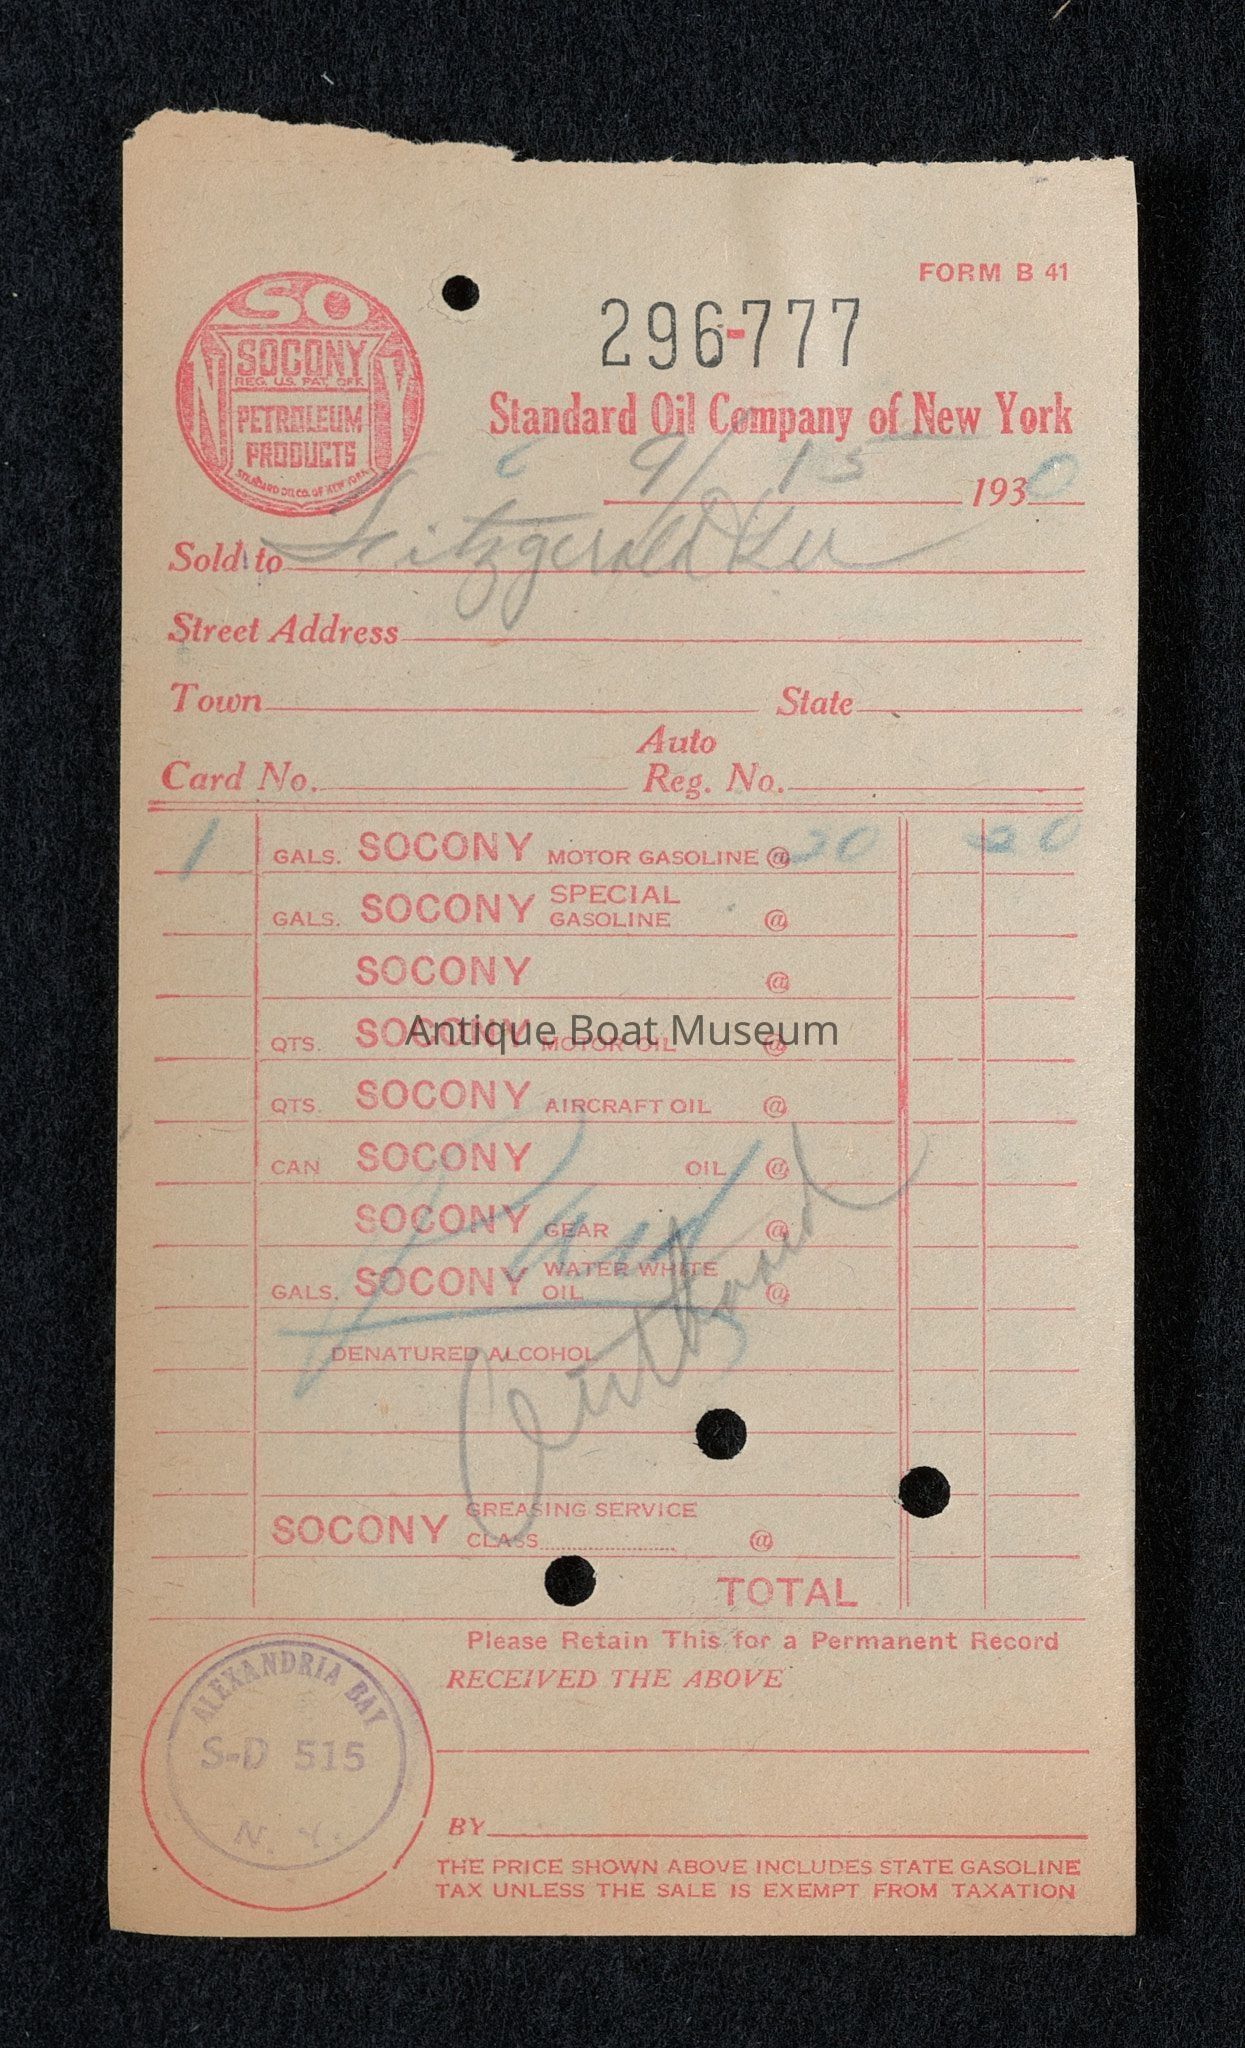 FORM B 41
SO
SOCONY
REG. U.S. PAT. OFF.
PETROLEUM
PRODUCTS
STANDARD OIL CO. OF NEW YORK
N Y
296-777
Standard Oil Company of New York
9/15 1930
Sold to Fitzgerald
Street Address
Town State
Auto
Card No. Reg. No.
1 GALS. SOCONY MOTOR GASOLINE @ 20 20
GALS. SOCONY SPECIAL GASOLINE @
SOCONY @
QTS. SOCONY MOTOR OIL @
Antique Boat Museum
QTS. SOCONY AIRCRAFT OIL @
CAN SOCONY OIL @
SOCONY GEAR @
GALS. SOCONY WATER WHITE OIL @
Paid
Outboard
DENATURED ALCOHOL
SOCONY GREASING SERVICE CLASS @
TOTAL
Please Retain This for a Permanent Record
RECEIVED THE ABOVE
ALEXANDRIA BAY
S-D 515
N. Y.
BY
THE PRICE SHOWN ABOVE INCLUDES STATE GASOLINE
TAX UNLESS THE SALE IS EXEMPT FROM TAXATION